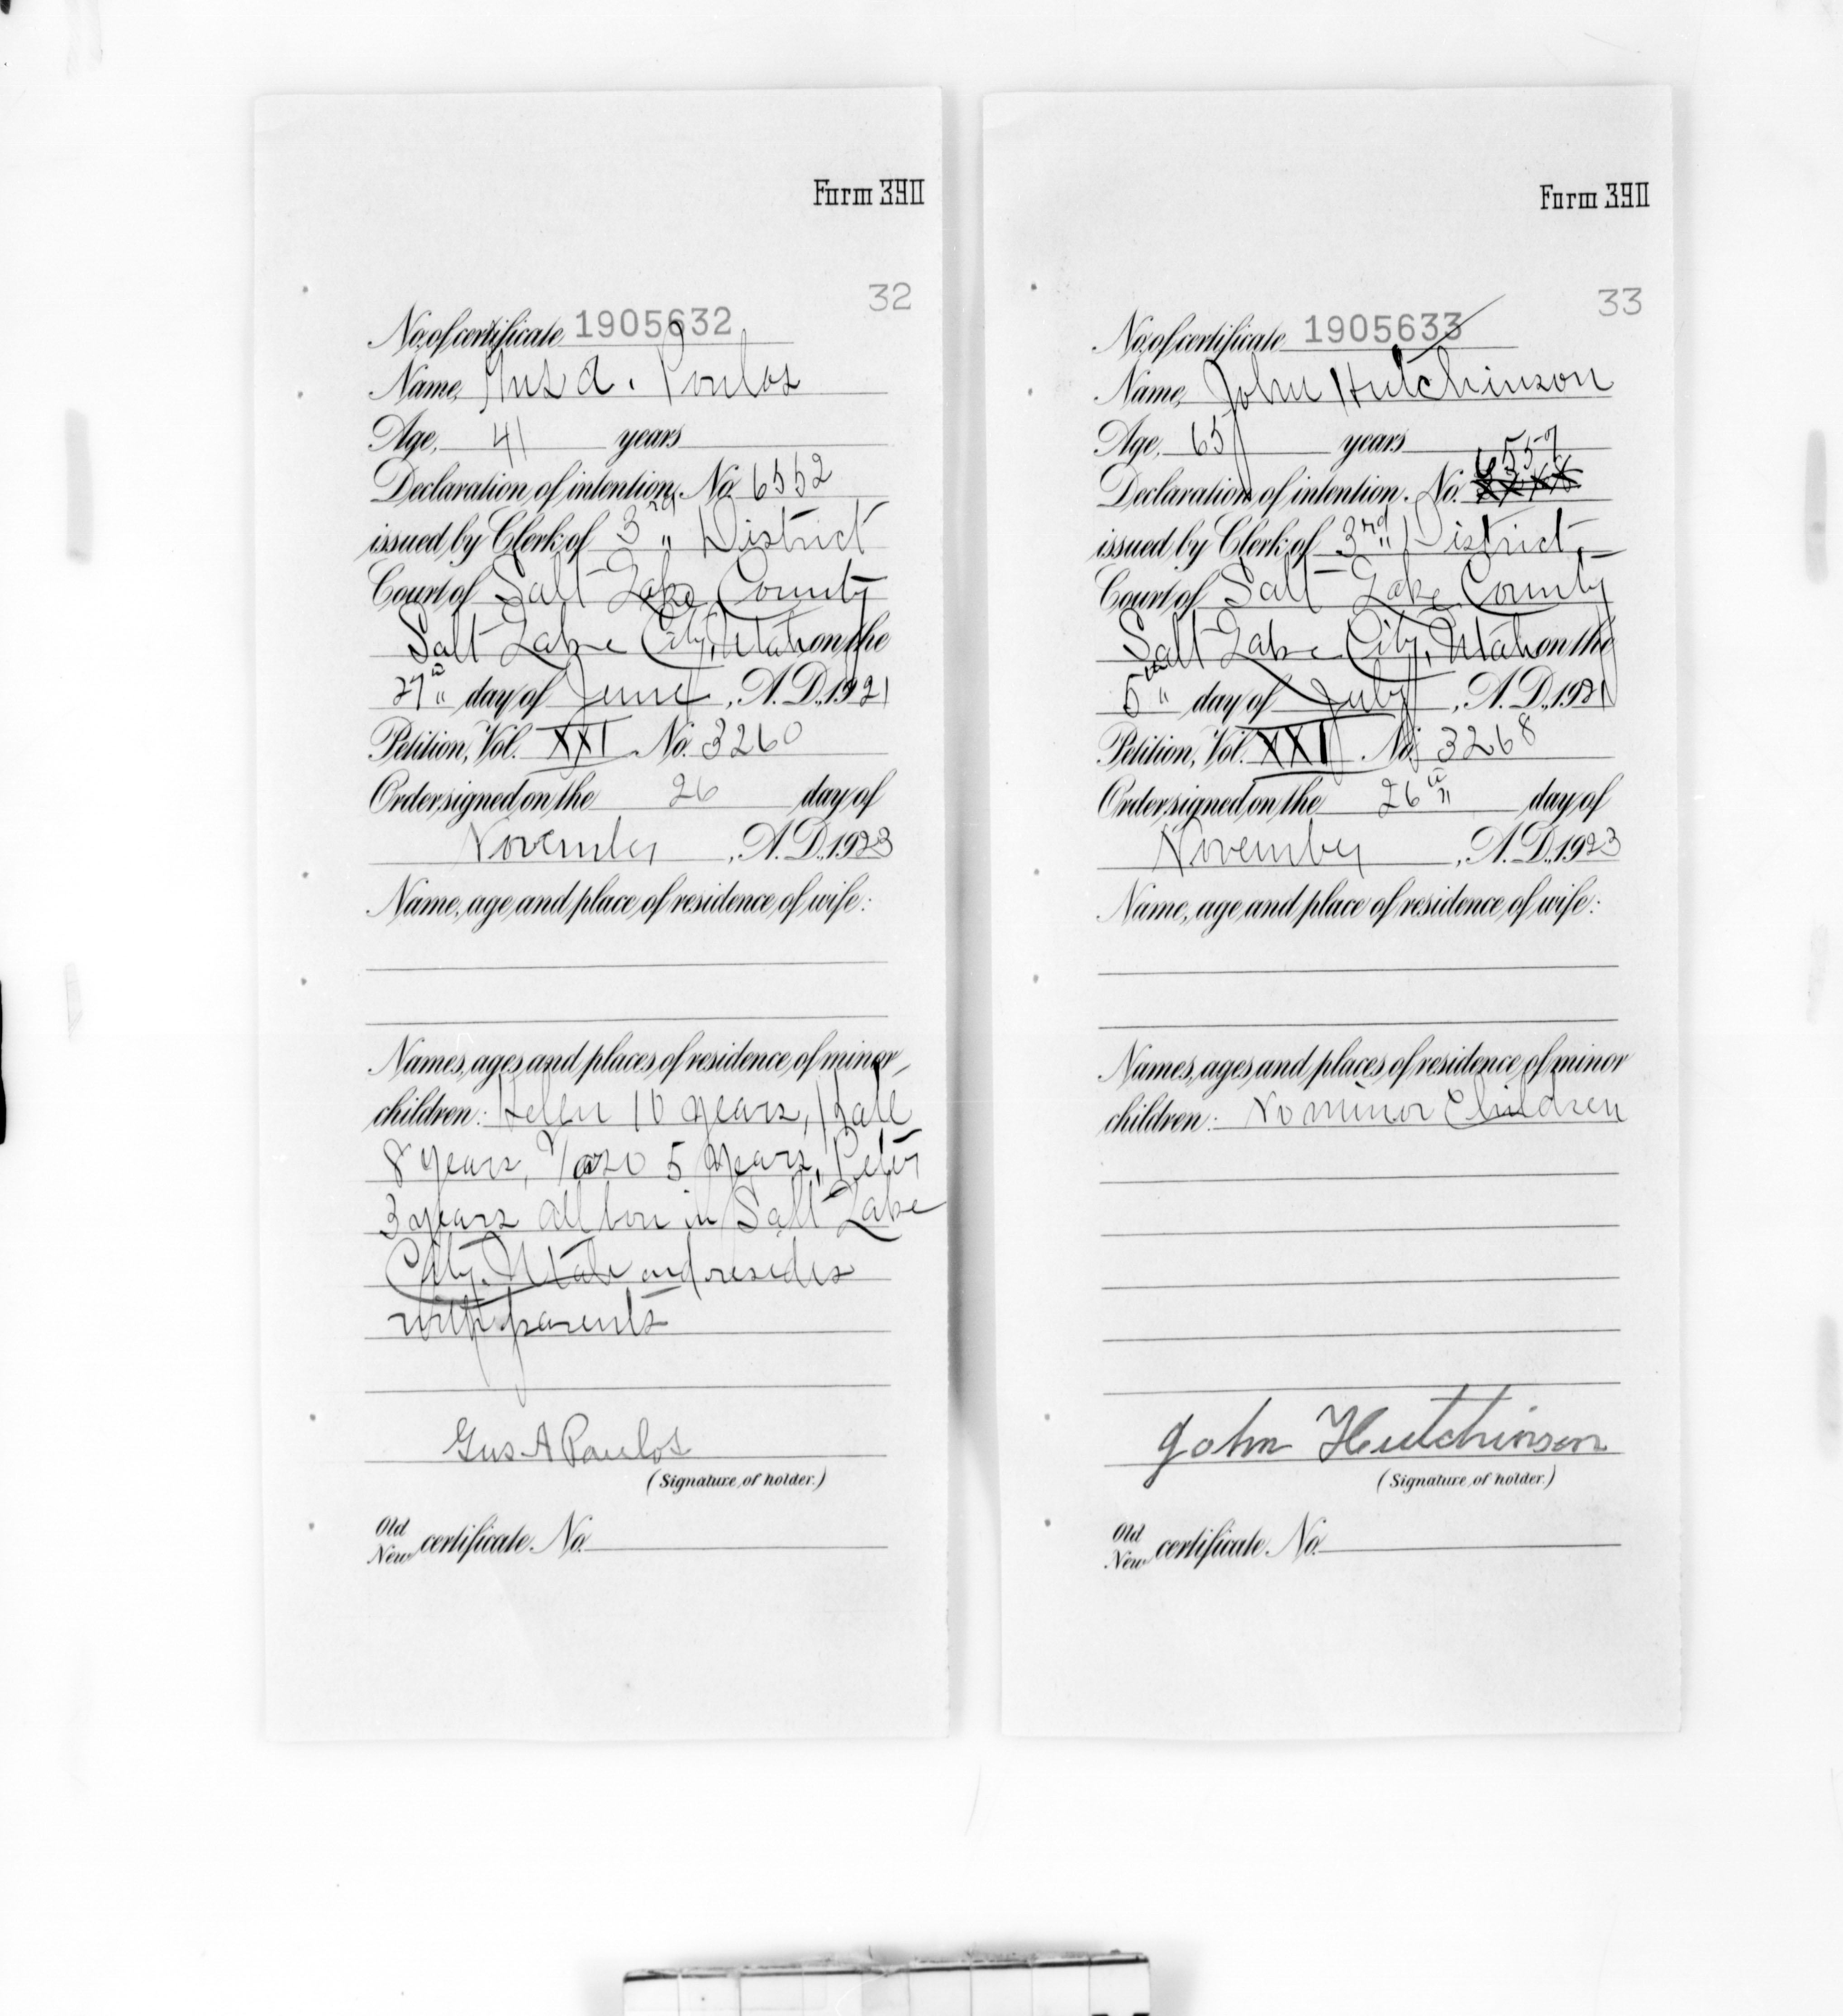 Form 390
32
No. of certificate 1905632
Name, Gus A. Poulos
Age, 41 years
Declaration of intention, No. 6552
issued by Clerk of 3rd District
Court of Salt Lake County
Salt Lake City, Utah on the
27th day of June, A. D., 1921
Petition, Vol. XXI No. 3260
Order signed on the 26 day of
November, A. D., 1923
Name, age, and place of residence of wife:
Names, ages, and places of residence of minor
children: Helen 10 years, Kate
8 years, 5 years, Peter
3 years all born in Salt Lake
City, Utah and resides
with parents
Gus A Paulos
(Signature of holder.)
Old
New certificate No.
Form 390
33
No. of certificate 1905633
Name, John Hutchinson
Age, 65 years
6557
Declaration of intention, No.
issued by Clerk of 3rd District,
Court of Salt Lake County
Salt Lake City, Utah on the
5th day of July, A. D., 1921
Petition, Vol. XXI No. 3268
Order signed on the 26th day of
November, A. D., 1923
Name, age, and place of residence of wife:
Names, ages, and places of residence of minor
children: No minor Children
John Hutchinson
(Signature of holder.)
Old
New certificate No.